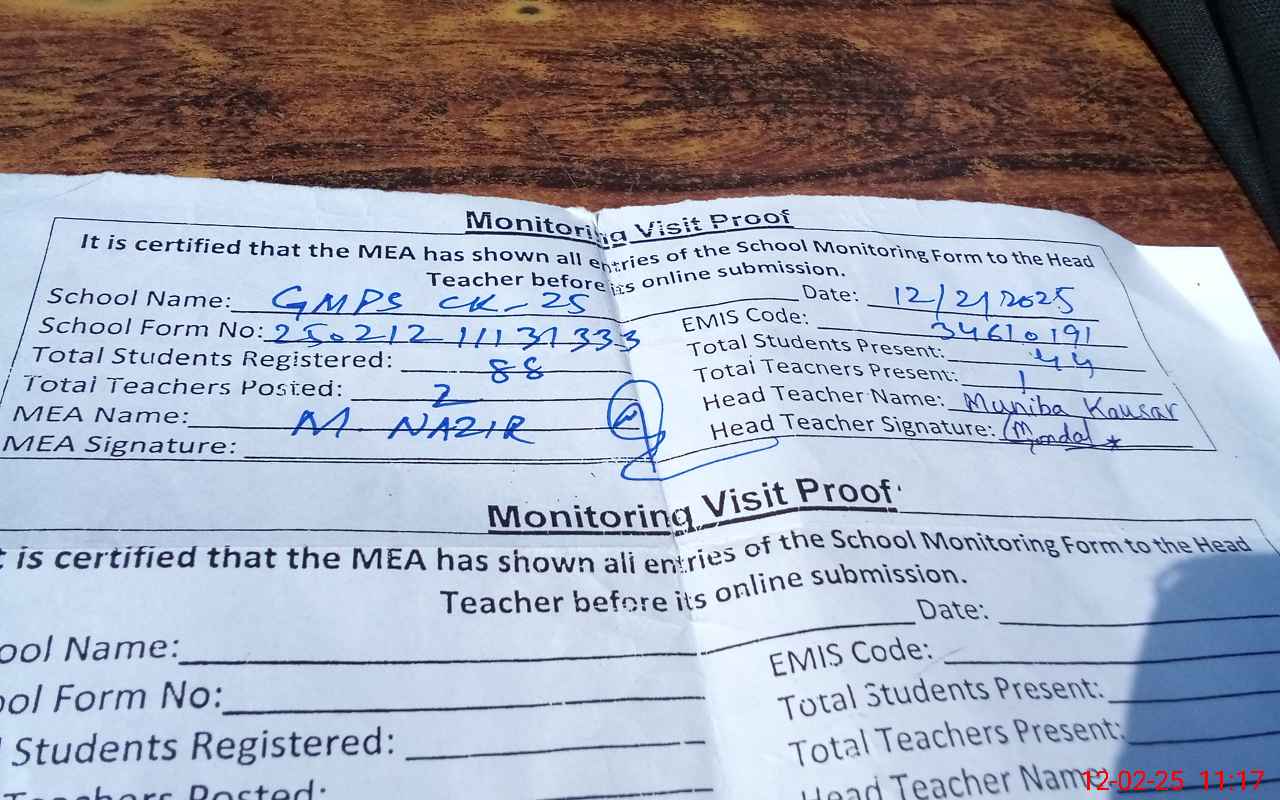 Monitoring Visit Proof
It is certified that the MEA has shown all entries of the School Monitoring Form to the Head
Teacher before its online submission.
School Name: GMPS CK-25 Date: 12/2/2025
School Form No: 25021211131333 EMIS Code: 34610191
Total Students Registered: 88 Total Students Present: 44
Total Teachers Posted: 2 Total Teachers Present: 1
MEA Name: M. NAZIR Head Teacher Name: Muniba Kausar
MEA Signature: Head Teacher Signature:
Monitoring Visit Proof
is certified that the MEA has shown all entries of the School Monitoring Form to the Head
Teacher before its online submission.
ool Name: Date:
ool Form No: EMIS Code:
Students Registered: Total Students Present:
Teachers Posted: Total Teachers Present:
Head Teacher Name:
12-02-25 11:17